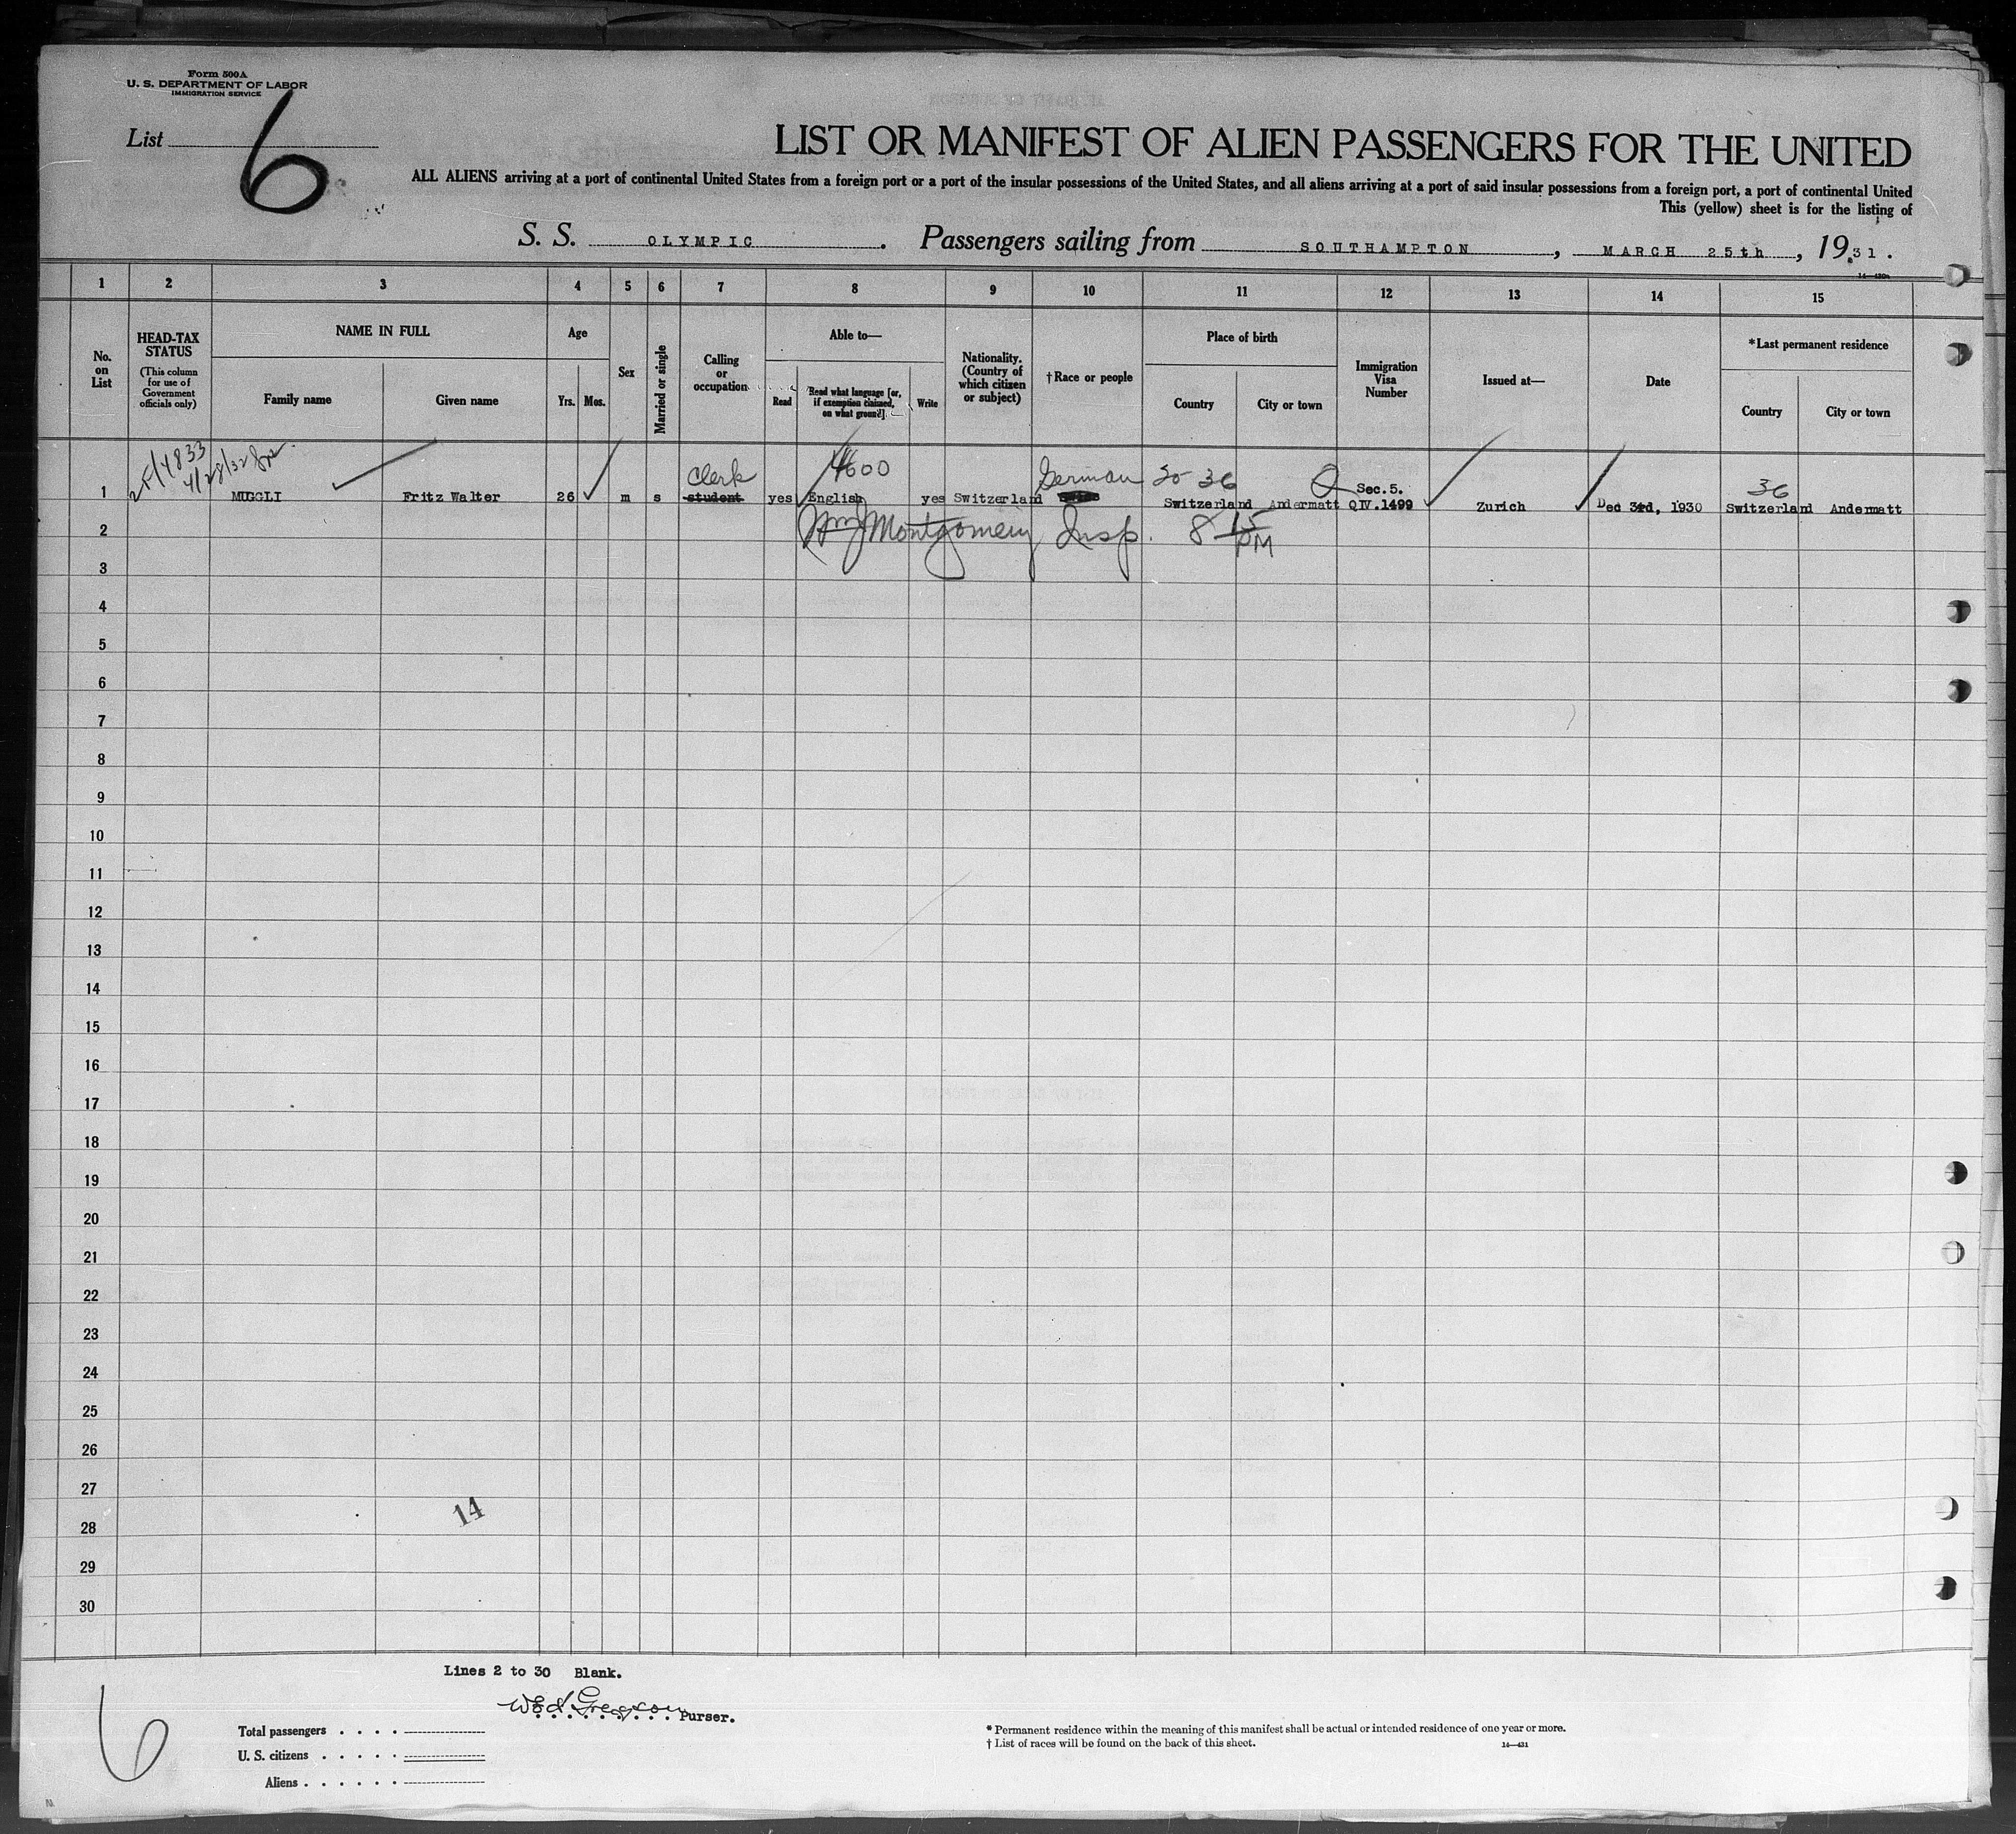 Form 500A
U. S. DEPARTMENT OF LABOR
IMMIGRATION SERVICE
List 6
LIST OR MANIFEST OF ALIEN PASSENGERS FOR THE UNITED
ALL ALIENS arriving at a port of continental United States from a foreign port or a port of the insular possessions of the United States, and all aliens arriving at a port of said insular possessions from a foreign port, a port of continental United
This (yellow) sheet is for the listing of
S. S. OLYMPIC. Passengers sailing from SOUTHAMPTON, MARCH 25th, 19.31.
14—430a
1 2 3 4 5 6 7 8 9 10 11 12 13 14 15
No. on List
HEAD-TAX STATUS
(This column for use of Government officials only)
NAME IN FULL
Family name
Given name
Age
Yrs. Mos.
Sex
Married or single
Calling or occupation
Able to—
Read
Read what language [or, if exemption claimed, on what ground]
Write
Nationality. (Country of which citizen or subject)
†Race or people
Place of birth
Country
City or town
Immigration Visa Number
Issued at—
Date
*Last permanent residence
Country
City or town
4/28/32
Clerk 4600 German 36 Q Sec.5. 36
1 MUGGLI Fritz Walter 26 m s student yes English yes Switzerland Switzerland Andermatt QIV.1499 Zurich Dec 3rd, 1930 Switzerland Andermatt
2 Wm J Montgomery Insp. 8 15 PM
3
4
5
6
7
8
9
10
11
12
13
14
15
16
17
18
19
20
21
22
23
24
25
26
27
14
28
29
30
Lines 2 to 30 Blank.
Purser.
6
Total passengers . . . .
U. S. citizens . . . . .
Aliens . . . . . .
* Permanent residence within the meaning of this manifest shall be actual or intended residence of one year or more.
† List of races will be found on the back of this sheet.
14—431